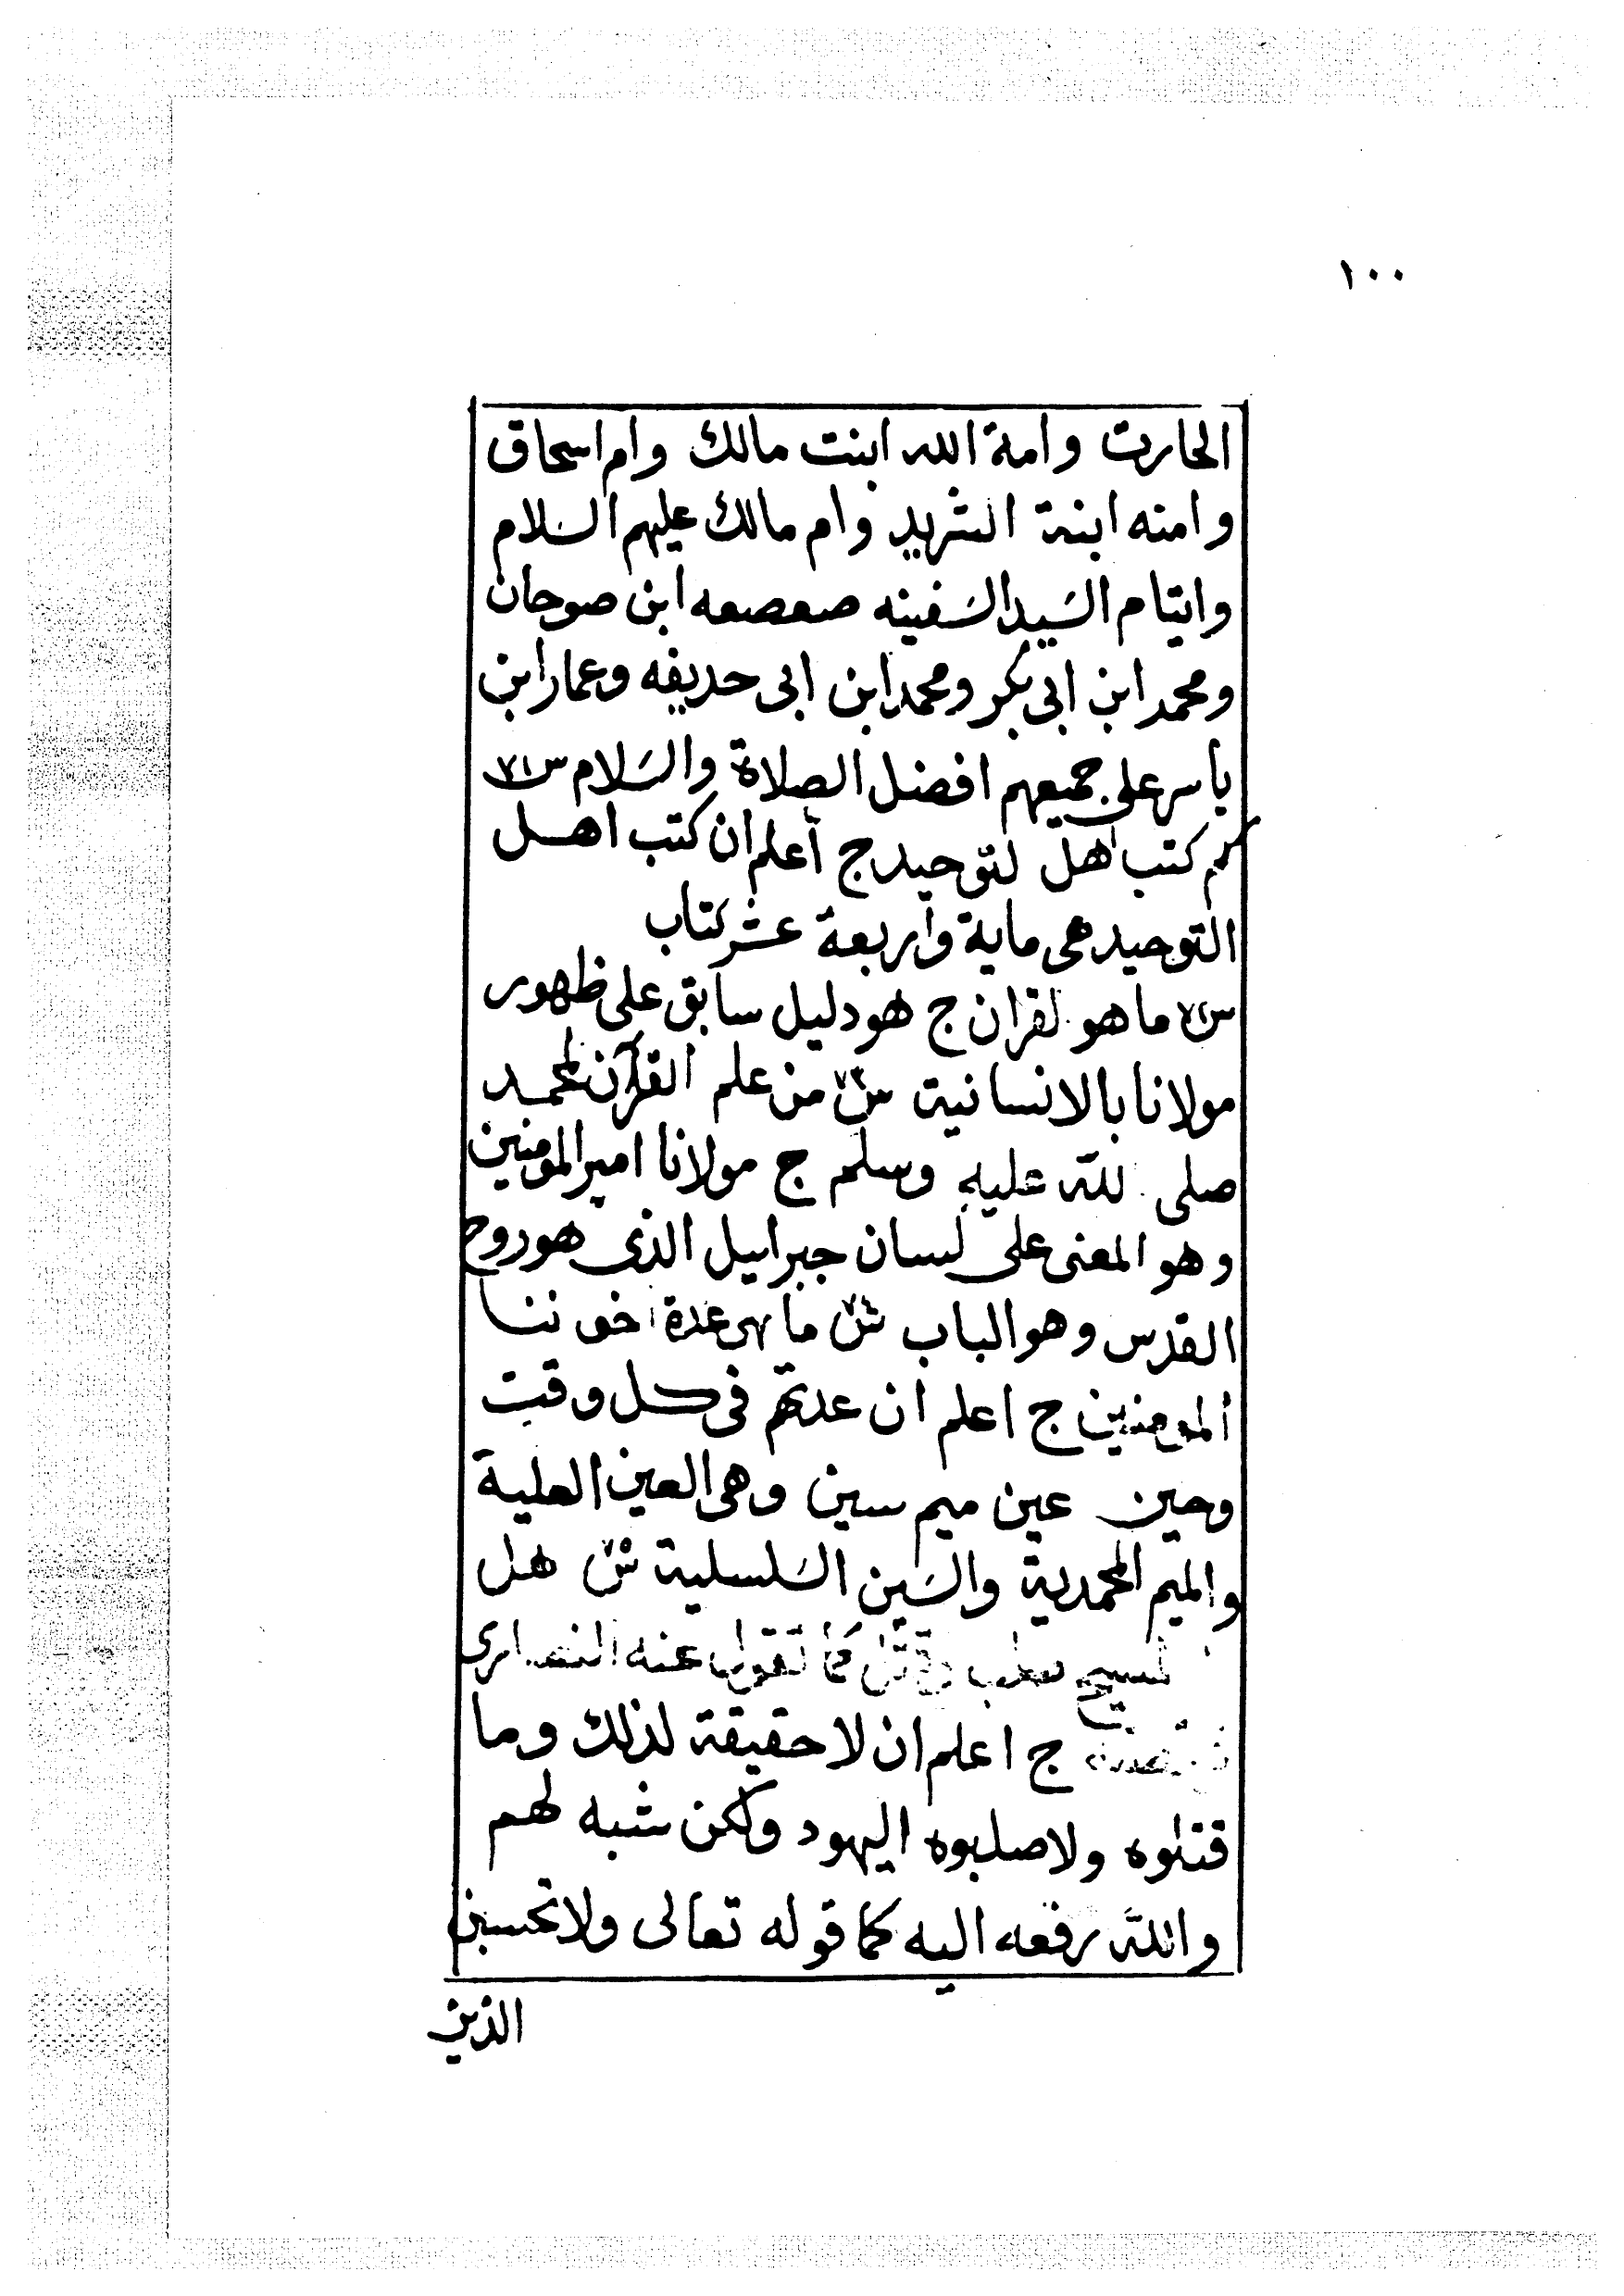 ١٠٠
الحارت وامة الله ابنت مالك وام اسحاق
وامنه ابنة الشريد وام مالك عليهم السلام
وايتام السيد السفينه صعصعه ابن صوحان
ومحمد ابن ابى بكر ومحمد ابن ابى حديفه وعمار ابن
ياسر على جميعهم افضل الصلاة والسلام س٧١
كم كتب اهل لتوحيد ج اعلم ان كتب اهل
التوحيد هى ماية واربعة عشر كتاب
س٧٢ ما هو لقران ج هو دليل سابق على ظهور
مولانا بالانسانية س٧٣ من علم القرآن لمحمد
صلى لله عليه وسلم ج مولانا امير المومنين
وهو المعنى على لسان جبراييل الذى هو روح
القدس وهو الباب س٧٤ ما هى عدة اخو ننا
المومنين ج اعلم ان عدتهم فى كل وقت
وحين عين ميم سين وهى العين العلية
والميم المحمدية والسين السلسلية س٧٥ هل
لمسيح صلب وقتل كما تقول عنه النصارى
ج اعلم ان لا حقيقة لذلك وما
قتلوه ولا صلبوه اليهود ولكن شبه لهم
والله رفعه اليه كما قوله تعالى ولا تحسبن
الذين